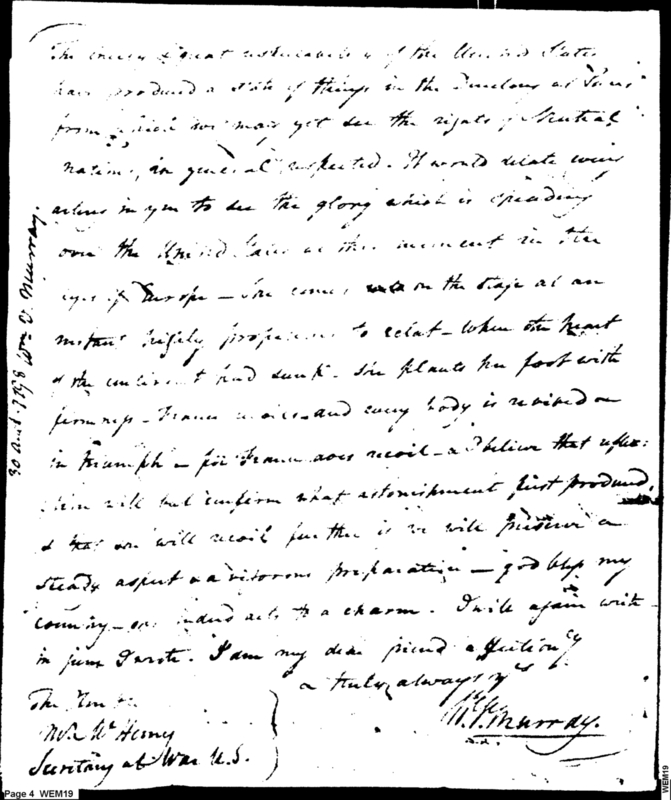 The energy & great respectability of the United States
have produced a state of things in the at Paris
from which we may yet see the rights of Neutral
nations, in general respected. It would elate
in you to see the glory which is spreading
over the United States at this moment in the
eyes of Europe — She comes on the stage at an
instant highly propitious to eclat — When the heart
of the continent had sunk. She plants her foot with
firmness — France and every body is revived
in triumph — for France does recoil — & I believe that reflec:
tion will but confirm what astonishment first produced,
& that she will recoil further if we will preserve a
steady aspect & a vigorous preparation — god bless my
country — indeed acts to a charm. I will again write
in I wrote. I am my dear friend affectionly
& truly always yrs
W. V. Murray.
The Honble
McHenry
Secretary at War U.S.
30 Aug. 1798 Wm V. Murray.
Page 4 WEM19
WEM19